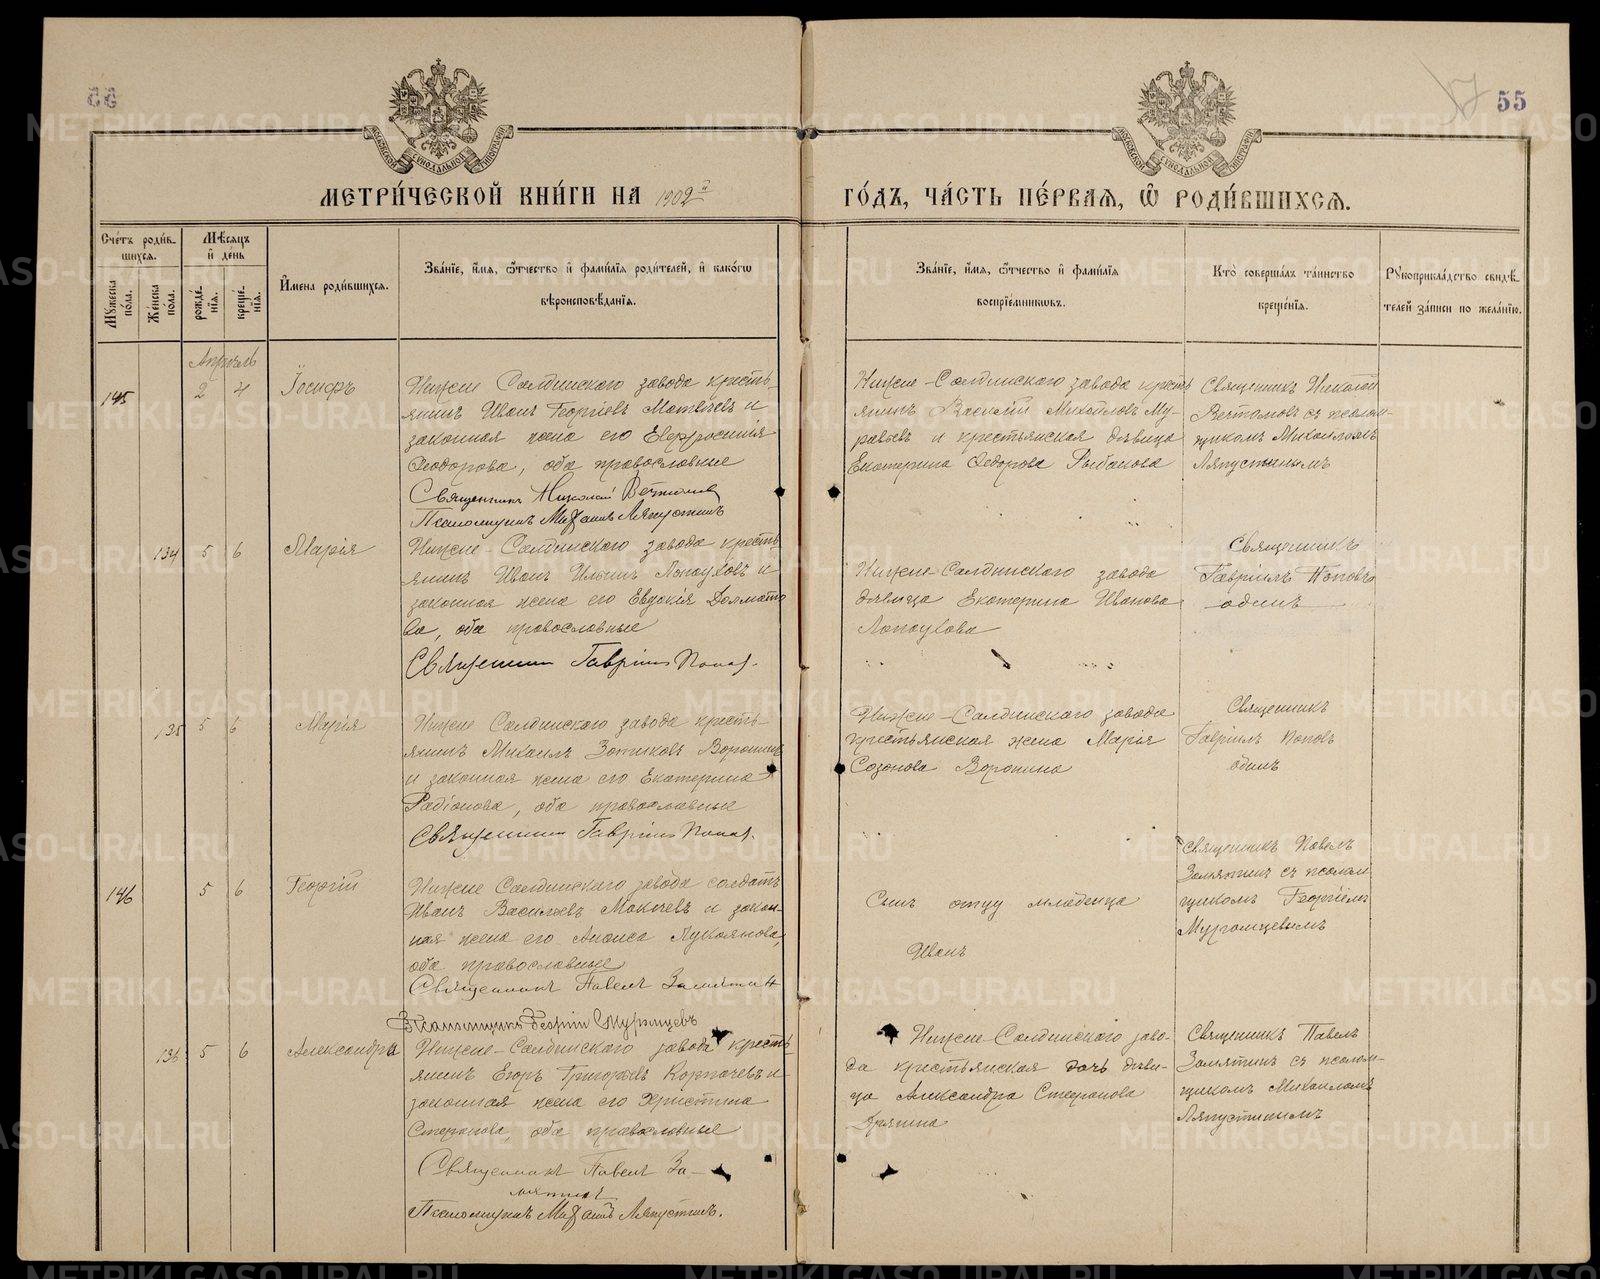 55
55
МЕТРИ́ЧЕСКОЙ КНИ́ГИ НА 1902й
ГО́ДЪ, ЧА́СТЬ ПЕ́РВАЯ, Ѽ РОДИ́ВШИХСЯ.
МОСКОВСКОЙ СѴНОДАЛЬНОЙ ТИПОГРАФІИ
МОСКОВСКОЙ СѴНОДАЛЬНОЙ ТИПОГРАФІИ
Сче́тъ роди́в-
шихся.
Му́жеска по́ла.
Же́нска по́ла.
Мѣ́сяцъ
и҆ де́нь
рожде́нїя.
креще́нїя.
И҆мена роди́вшихся.
Зва́нїе, и҆́мя, ѻ҆́тчество и҆ фами́лїя роди́телей, и҆ како́гѡ
вѣроисповѣ́данїя.
Зва́нїе, и҆́мя, ѻ҆́тчество и҆ фами́лїя
воспрїе́мникѡвъ.
Кто̀ соверша́лъ та́инство
креще́нїя.
Рукоприкла́дство свидѣ́-
телей за́писи по жела́нїю.
Апрѣль
145
2 4
Іосифъ
Нижне Салдинскаго завода кресть-
янинъ Иванъ Георгіевъ Матвѣевъ и
законная жена его Евфросинія
Ѳеодорова, оба православные
Священникъ Николай
Псаломщикъ Михаилъ Ляпустинъ
Нижне-Салдинскаго завода кресть
янинъ Василій Михайловъ Му-
равьевъ и крестьянская дѣвица
Екатерина Ѳедорова Рыбакова
Священникъ Николай
съ псалом-
щикомъ Михаиломъ
Ляпустинымъ
134
5 6
Марія
Нижне-Салдинскаго завода кресть-
янинъ Иванъ Ильинъ Лопоуховъ и
законная жена его Евдокія Долмато
ва, оба православные
Священникъ Гавріилъ Поповъ.
Нижне-Салдинскаго завода
дѣвица Екатерина Иванова
Лопоухова
Священникъ
Гавріилъ Поповъ
одинъ
135
5 6
Марія
Нижне Салдинскаго завода кресть-
янинъ Михаилъ Зотиковъ Воронинъ
и законная жена его Екатерина
Радіонова, оба православные
Священникъ Гавріилъ Поповъ.
Нижне-Салдинскаго завода
крестьянская жена Марія
Созонова Воронина
Священникъ
Гавріилъ Поповъ
одинъ
146
5 6
Георгій
Нижне Салдинскаго завода солдатъ
Иванъ Васильевъ Мокѣевъ и закон-
ная жена его Аниса Лукоянова,
оба православные
Священникъ Павелъ Замятин
Псаломщикъ Георгій
Сынъ отцу младенца
Иванъ
Священникъ Павелъ
Замятинъ съ псалом
щикомъ Георгіемъ
136
5 6
Александра
Нижне-Салдинскаго завода кресть-
янинъ Егоръ Григорьевъ Корпачевъ и
законная жена его Христина
Стефанова, оба православные
Священникъ Павелъ За-
мятинъ
Псаломщикъ Михаилъ Ляпустинъ.
Нижне-Салдинскаго заво-
да крестьянская дочь дѣви-
ца Александра Стефанова
Священникъ Павелъ
Замятинъ съ псалом-
щикомъ Михаиломъ
Ляпустинымъ
METRIKI.GASO-URAL.RU